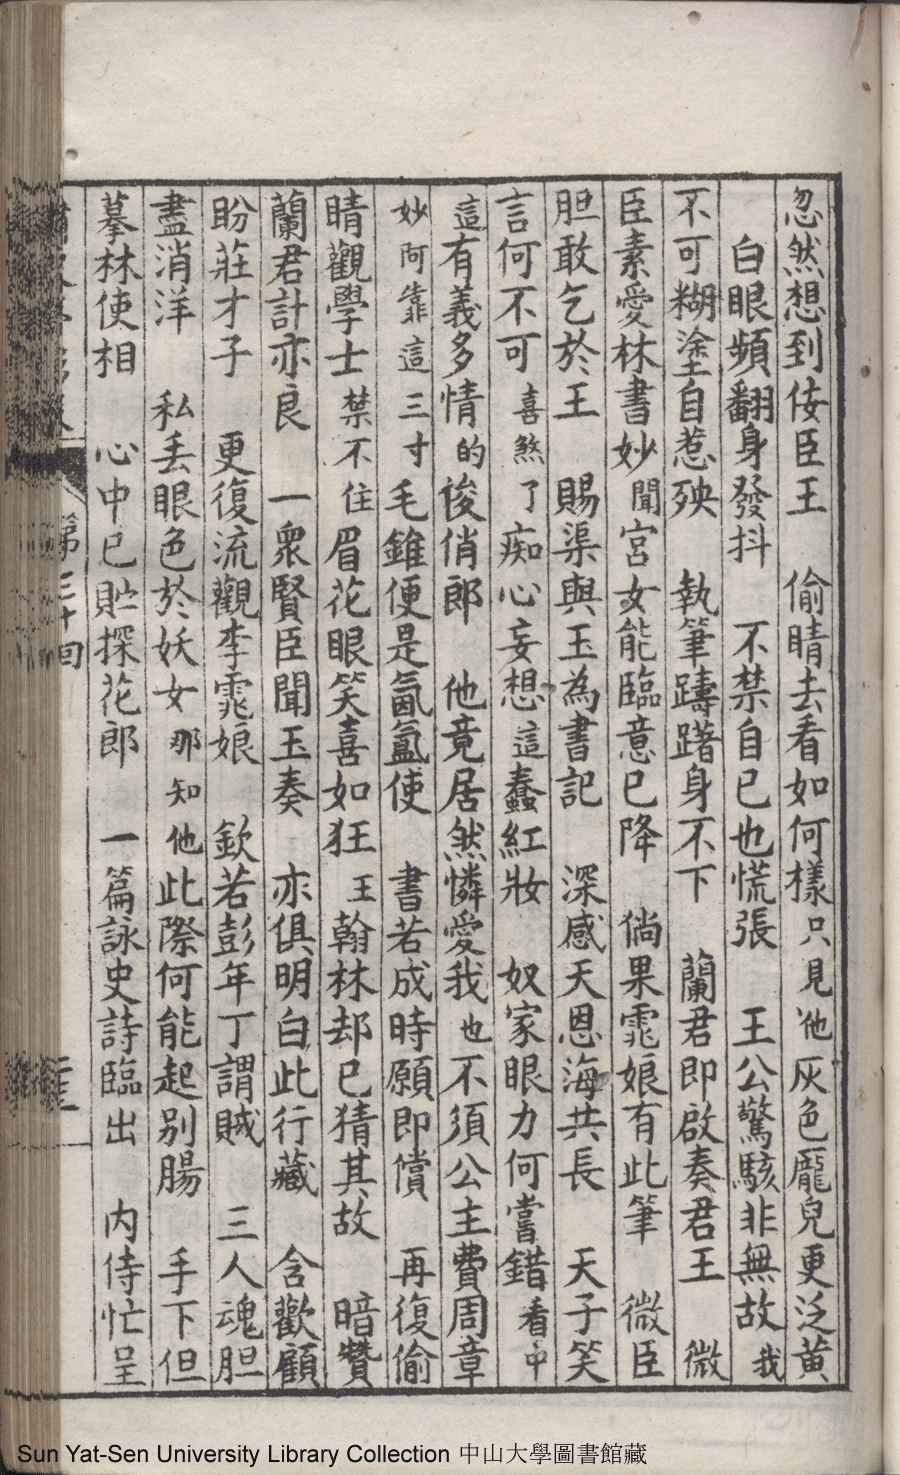 忽然想到佞臣王　偷睛去看如何樣只見他灰色龐兒更泛黄
白眼頻翻身發抖　不禁自已也慌張　王公驚駭非無故我
不可糊塗自惹殃　執筆躊躇身不下　蘭君即啟奏君王　微
臣素愛林書妙聞宮女能臨意已降　倘果霏娘有此筆　微臣
胆敢乞於王　賜渠與玉為書記　深感天恩海共長　天子笑
言何不可喜煞了痴心妄想這蠢紅妝　奴家眼力何嘗錯看中
這有義多情的俊俏郎　他竟居然憐愛我也不須公主費周章
妙阿靠這三寸毛錐便是氤氳使　書若成時願即償　再復偷
睛觀學士禁不住眉花眼笑喜如狂　王翰林却已猜其故　暗贊
蘭君計亦良　一衆賢臣聞玉奏　亦俱明白此行藏　含歡顧
盼莊才子　更復流觀李霏娘　欽若彭年丁謂賊　三人魂胆
盡消洋　私丢眼色於妖女那知他此際何能起别腸　手下但
摹林使相　心中已貯探花郎　一篇詠史詩臨出　内侍忙呈
第三十回
Sun Yat-Sen University Library Collection 中山大學圖書館藏